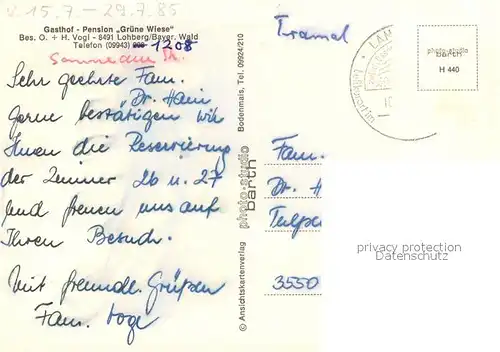 v. 15.7 - 29.7.85
Gasthof - Pension „Grüne Wiese"
Bes. O. + H. Vogl - 8491 Lohberg/Bayer. Wald
Telefon (09943) 298 1208
Sehr geehrte Fam.
Dr. Hain
gerne bestätigen wir
Ihnen die Reservierung
der Zimmer 26 u. 27
und freuen uns auf
Ihren Besuch.
Mit freundl. Grüßen
Fam. Vogl
© Ansichtskartenverlag photo-studio barth Bodenmais, Tel. 09924/210
Tramal
photo-studio
barth
H 440
Fam.
Dr. H
Tulpe
3550
privacy protection
Datenschutz